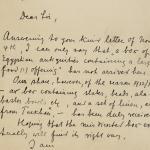 Dear Sir,
Answering to your kind letter of Nov.
9th, I can only say that a box of
Egyptian antiquities containing a large
food offering has not arrived here.
One above, however, of the
box containing slates, beads, ala-
baster bowls etc., and a set of linen,
from Tarkhan, has been duly received
Hoping that the
tually will find its right way,
I am